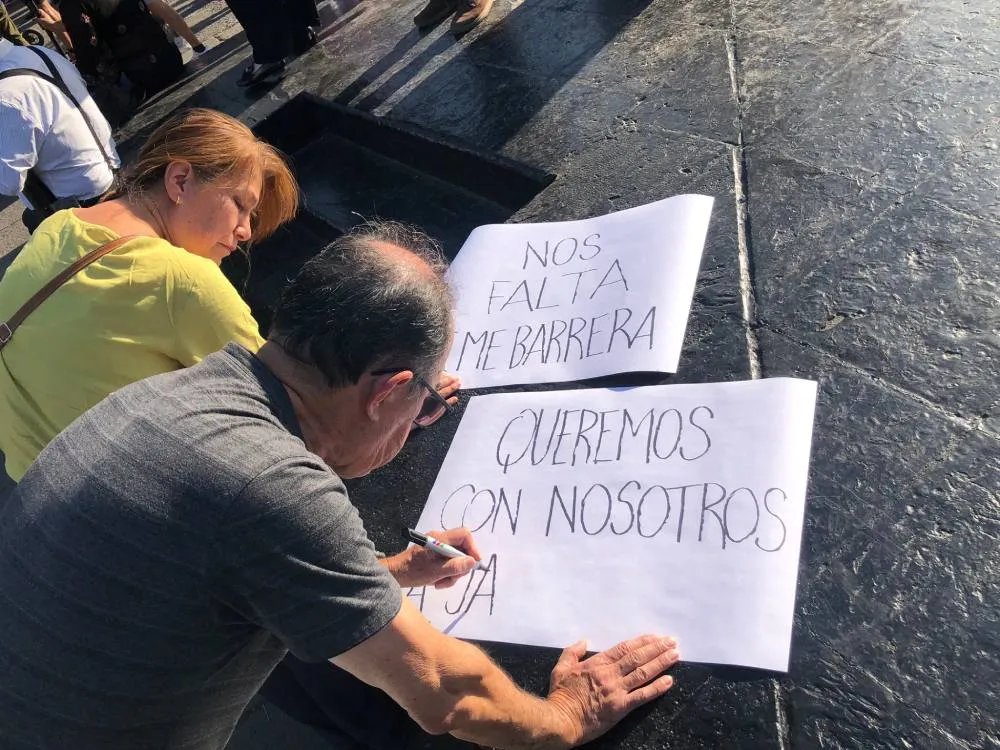 NOS
FALTA
ME BARRERA
QUEREMOS
CON NOSOTROS
A JA